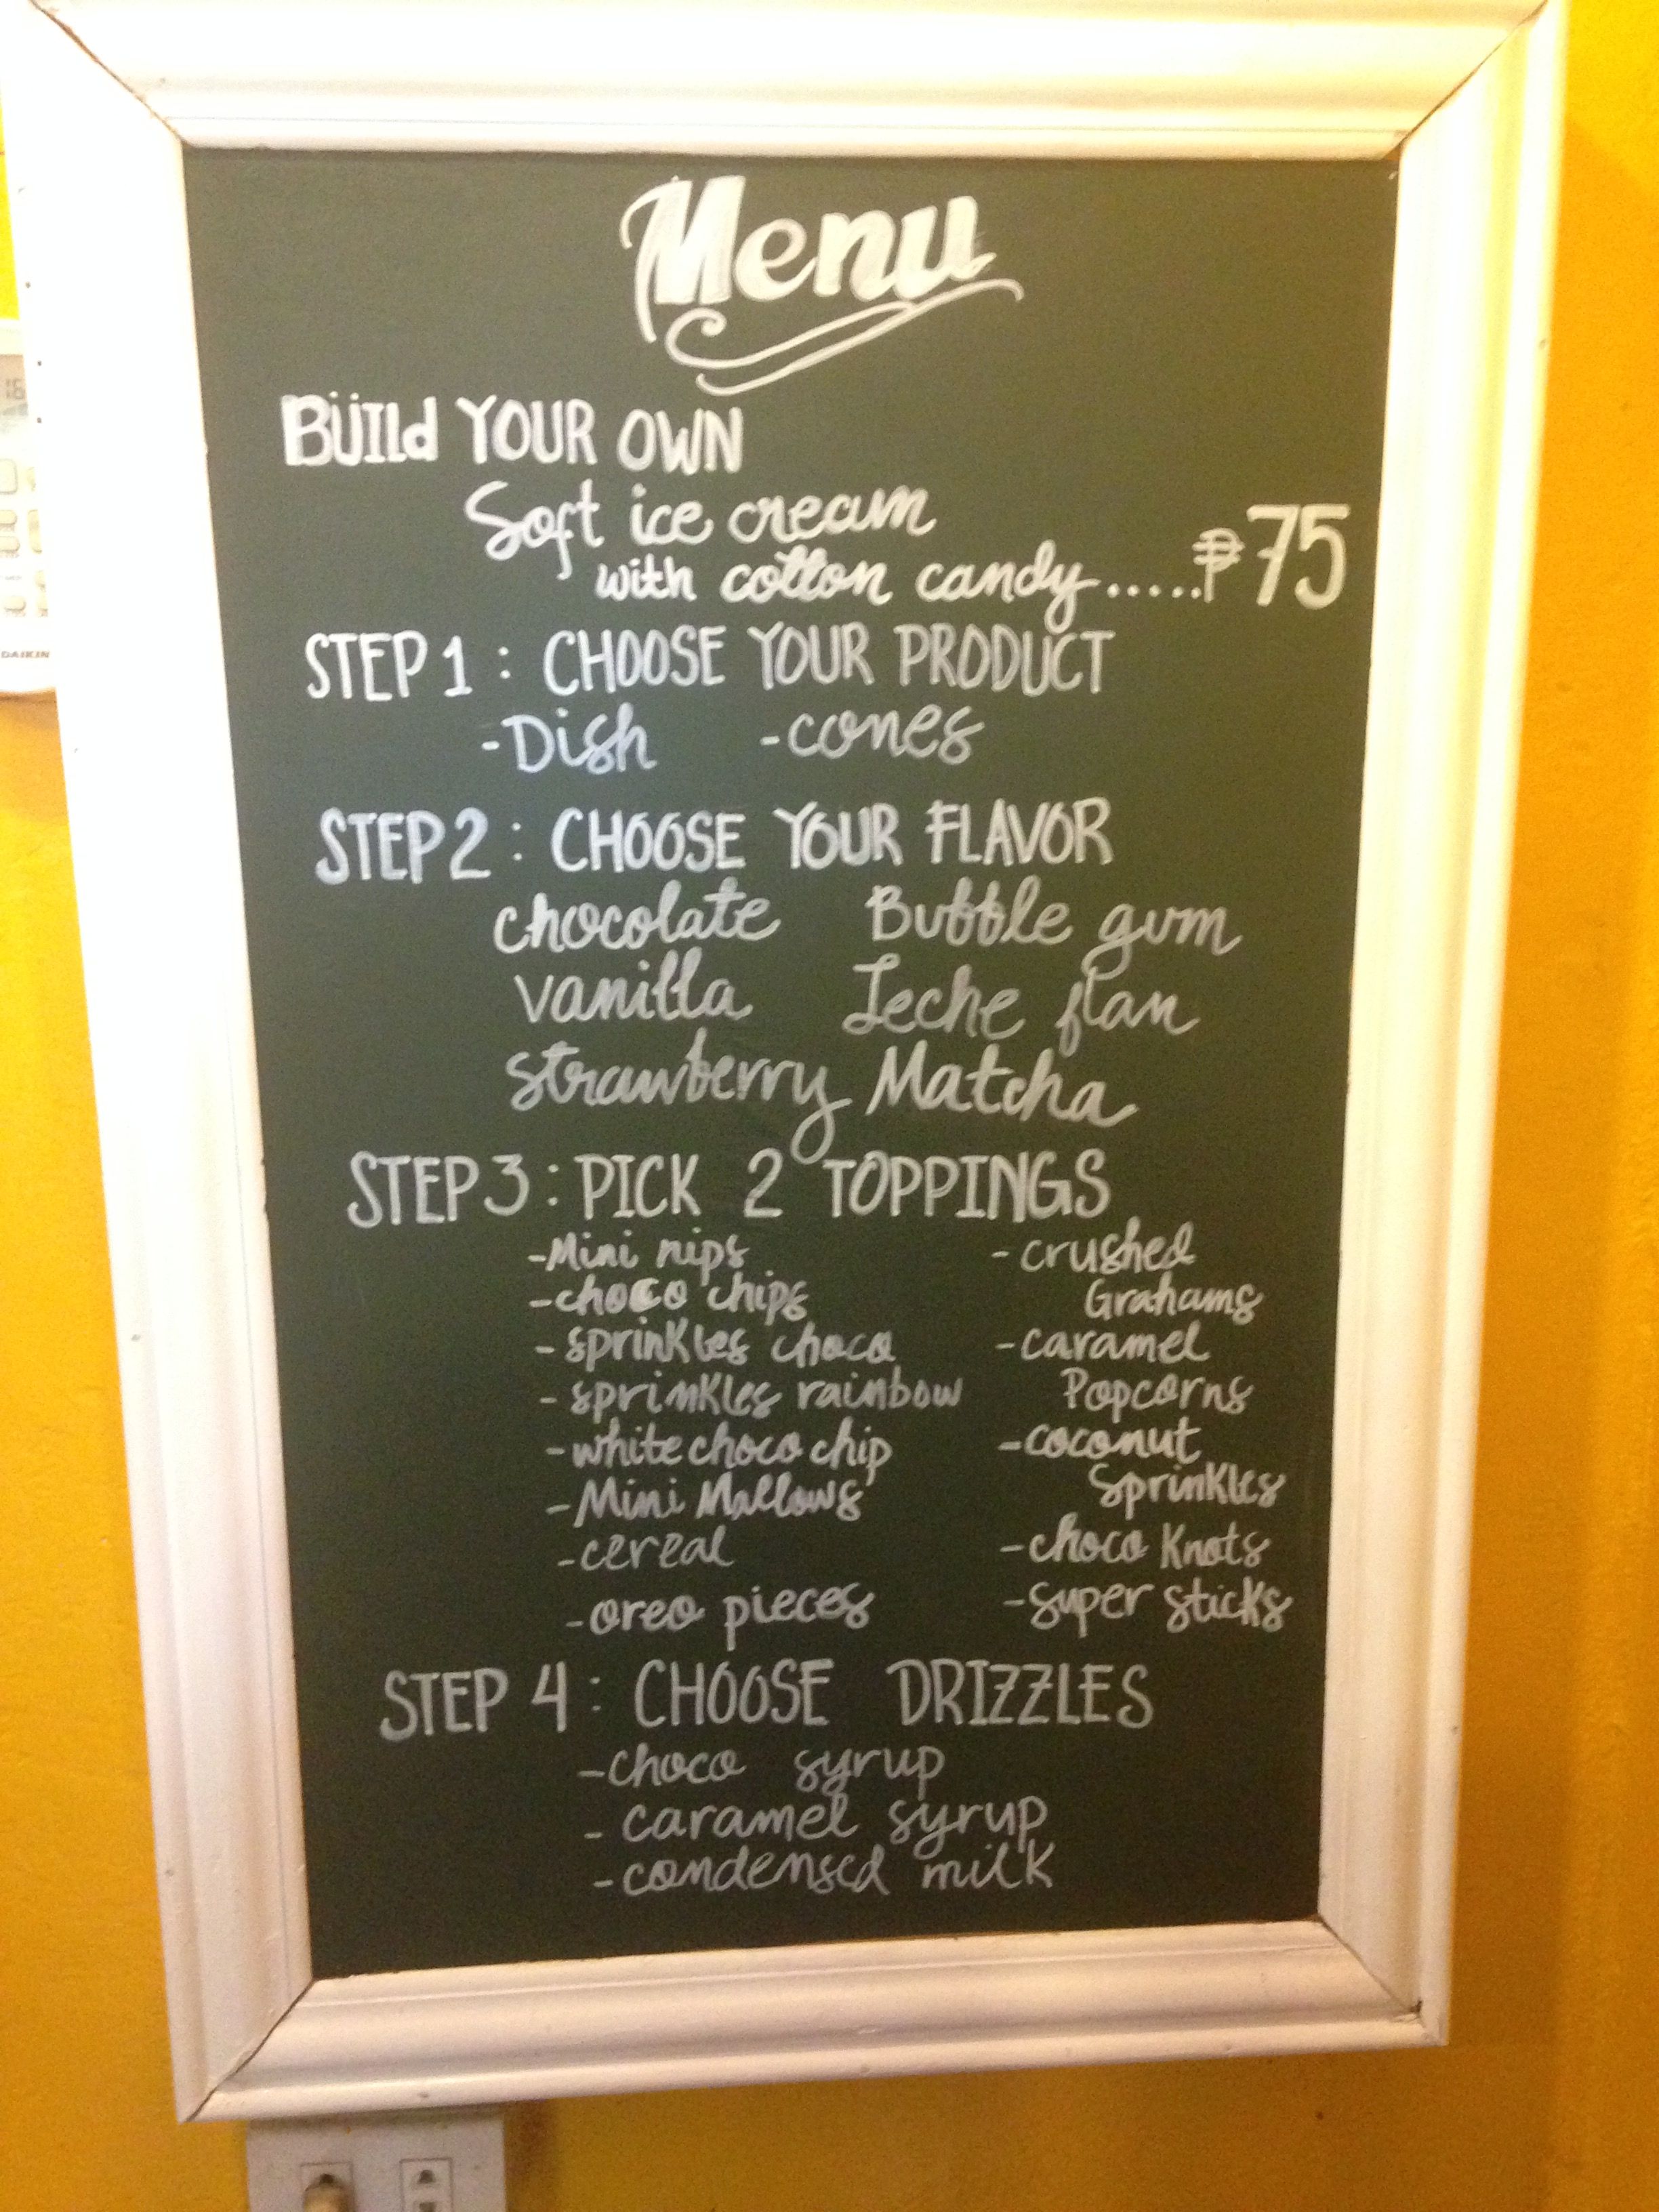 Menu
BUILd YOUR OWN
Soft ice cream
with cotton candy.....₱75
STEP 1 : CHOOSE YOUR PRODUCT
-Dish -cones
STEP 2 : CHOOSE YOUR FLAVOR
chocolate Bubble gum
vanilla Leche flan
strawberry Matcha
STEP 3 : PICK 2 TOPPINGS
-Mini nips
-choco chips
-sprinkles choco
-sprinkles rainbow
-white choco chip
-Mini Mallows
-cereal
-oreo pieces
-crushed
Grahams
-caramel
Popcorns
-coconut
Sprinkles
-choco Knots
-super sticks
STEP 4 : CHOOSE DRIZZLES
-choco syrup
-caramel syrup
-condensed milk
DAIKIN